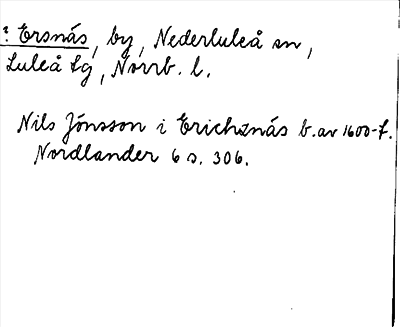 ? Ersnäs, by, Nederluleå sn,
Luleå tg, Norrb. l.
Nils Jönsson i Erichznäs b. av 1600-t.
Nordlander 6 s. 306.